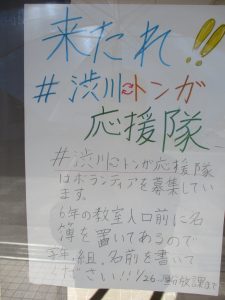 来たれ!!
#渋川⇆トンガ
応援隊
#渋川⇆トンガ応援隊
はボランティアを募集してい
ます。
6年の教室入口前に名
簿を置いてあるので
学年、組、名前を書いて
ください!!! 1/26 放課まで